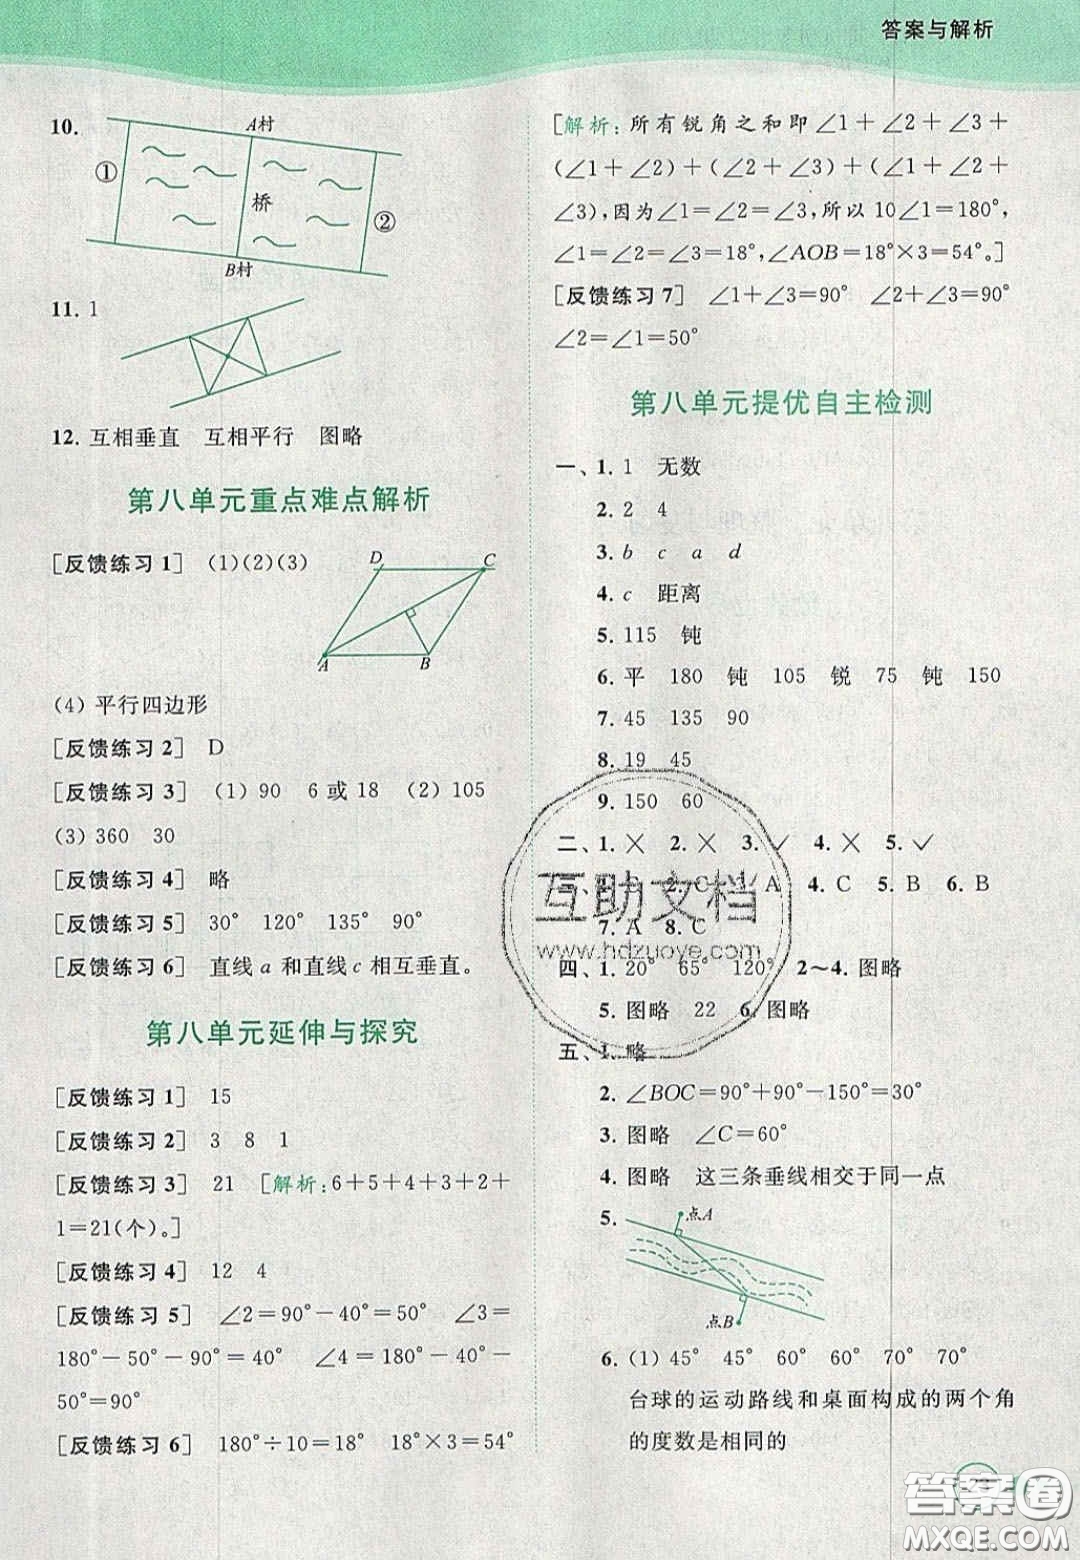 答案与解析
10.
A村
①
桥
②
B村
11. 1
12. 互相垂直 互相平行 图略
第八单元重点难点解析
[反馈练习 1] (1)(2)(3)
D
C
A
B
(4) 平行四边形
[反馈练习 2] D
[反馈练习 3] (1) 90 6 或 18 (2) 105
(3) 360 30
[反馈练习 4] 略
[反馈练习 5] 30° 120° 135° 90°
[反馈练习 6] 直线 a 和直线 c 相互垂直。
第八单元延伸与探究
[反馈练习 1] 15
[反馈练习 2] 3 8 1
[反馈练习 3] 21 [解析:6+5+4+3+2+
1=21(个)。]
[反馈练习 4] 12 4
[反馈练习 5] ∠2=90°-40°=50° ∠3=
180°-50°-90°=40° ∠4=180°-40°-
50°=90°
[反馈练习 6] 180°÷10=18° 18°×3=54°
[解析:所有锐角之和即∠1+∠2+∠3+
(∠1+∠2)+(∠2+∠3)+(∠1+∠2+
∠3),因为∠1=∠2=∠3,所以 10∠1=180°,
∠1=∠2=∠3=18°,∠AOB=18°×3=54°。]
[反馈练习 7] ∠1+∠3=90° ∠2+∠3=90°
∠2=∠1=50°
第八单元提优自主检测
一、1. 1 无数
2. 2 4
3. b c a d
4. c 距离
5. 115 钝
6. 平 180 钝 105 锐 75 钝 150
7. 45 135 90
8. 19 45
9. 150 60
二、1. × 2. × 3. ✓ 4. × 5. ✓
2. C A 4. C 5. B 6. B
7. A 8. C
四、1. 20° 65° 120° 2～4. 图略
5. 图略 22 6. 图略
五、1. 略
2. ∠BOC=90°+90°-150°=30°
3. 图略 ∠C=60°
4. 图略 这三条垂线相交于同一点
5.
点A
点B
6. (1) 45° 45° 60° 60° 70° 70°
台球的运动路线和桌面构成的两个角
的度数是相同的
互助文档
www.hdzuoye.com
答案圈
MXQE.COM